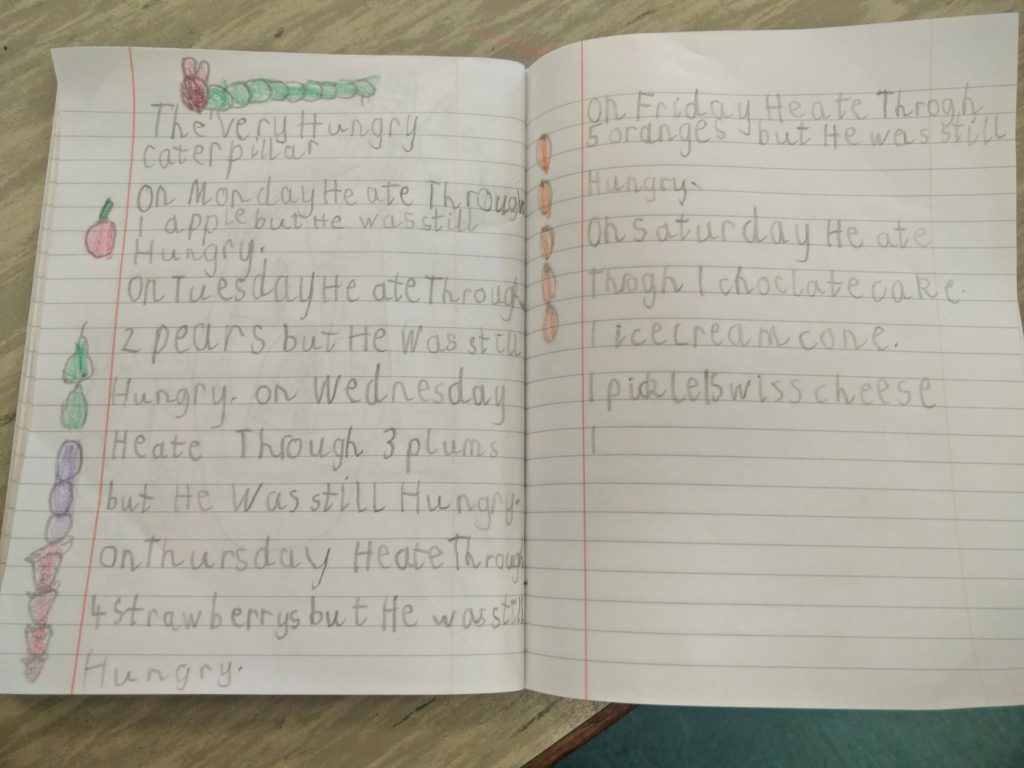 The very Hungry
caterpillar
on Monday He ate Through
1 apple but He was still
Hungry.
on Tuesday He ate Through
2 pears but He Was still
Hungry. on Wednesday
He ate Through 3 plums
but He Was still Hungry.
on Thursday He ate Through
4 strawberrys but He was still
Hungry.
on Friday He ate Throgh
5 oranges but He was still
Hungry.
on Saturday He ate
Throgh 1 choclate cake.
1 icecream cone.
1 pickle 1 swiss cheese
1